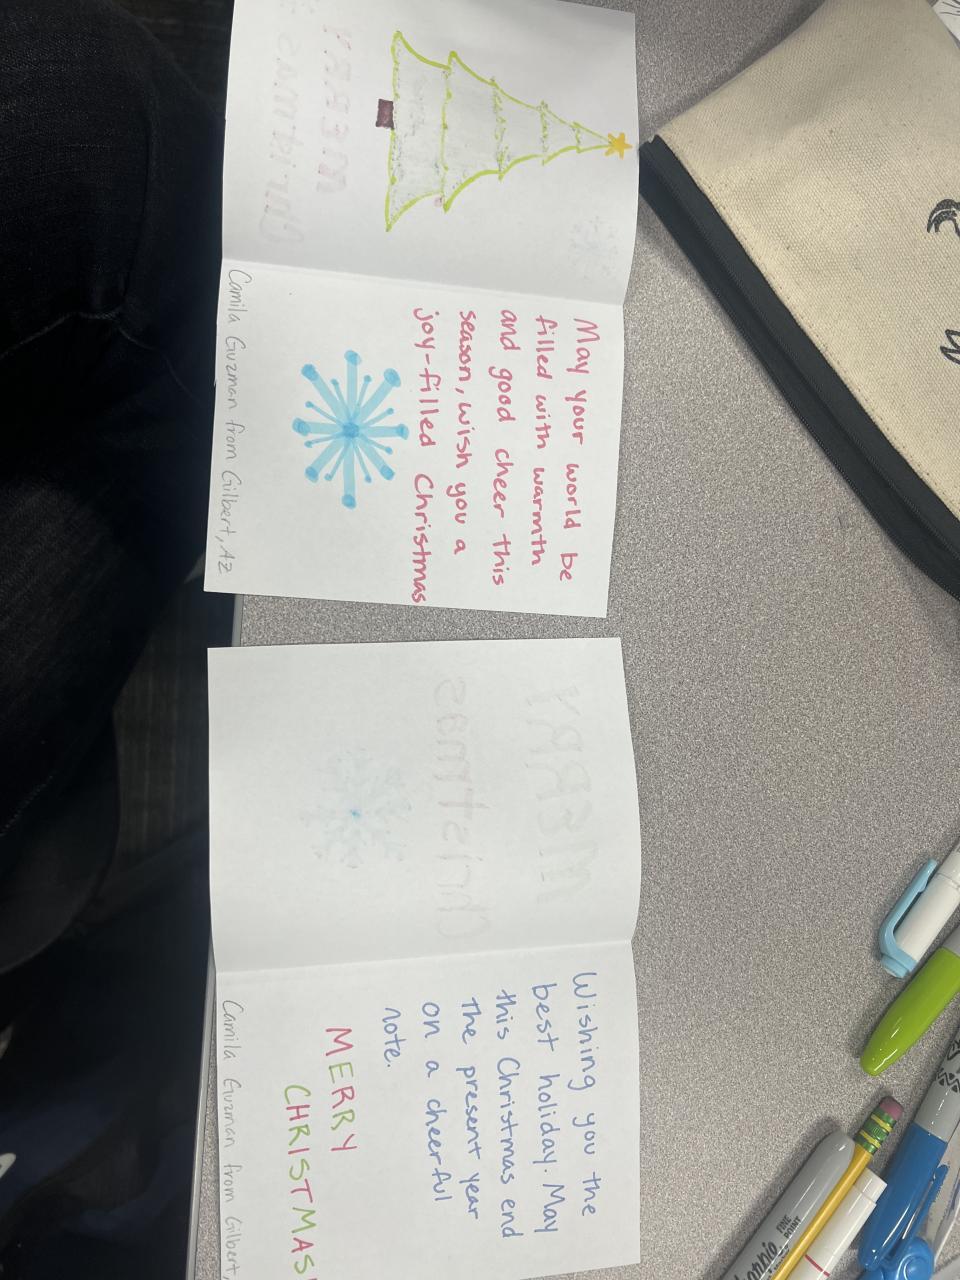 May your world be
filled with warmth
and good cheer this
season, wish you a
joy-filled Christmas
Camila Guzman from Gilbert, AZ
MERRY
Christmas
Wishing you the
best holiday. May
this Christmas end
the present year
on a cheerful
note.
MERRY
CHRISTMAS
Camila Guzman from Gilbert,
MERRY
Christmas
FINE
POINT